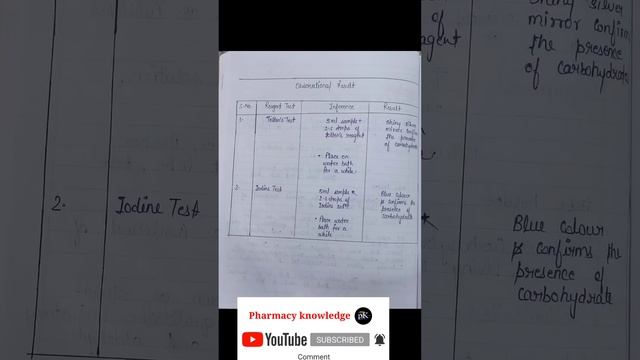 Observational Result
S.No. Reagent Test Inference Result
1. Tollen's Test 5ml sample +
2-3 drops of
Tollen's reagent
• Place on
water bath
for a while.
Shiny silver
mirror confirm
the presence
of carbohydrate
2. Iodine Test 5ml sample +
2-3 drops of
Iodine soln
• Place water
bath for a
while
Blue colour
is confirms the
presence of
carbohydrate
2. Iodine Test
of
agent
Shiny silver
mirror confirm
the presence
of carbohydrate
Blue colour
is confirms the
presence of
carbohydrate
Pharmacy knowledge PK
YouTube SUBSCRIBED
Comment